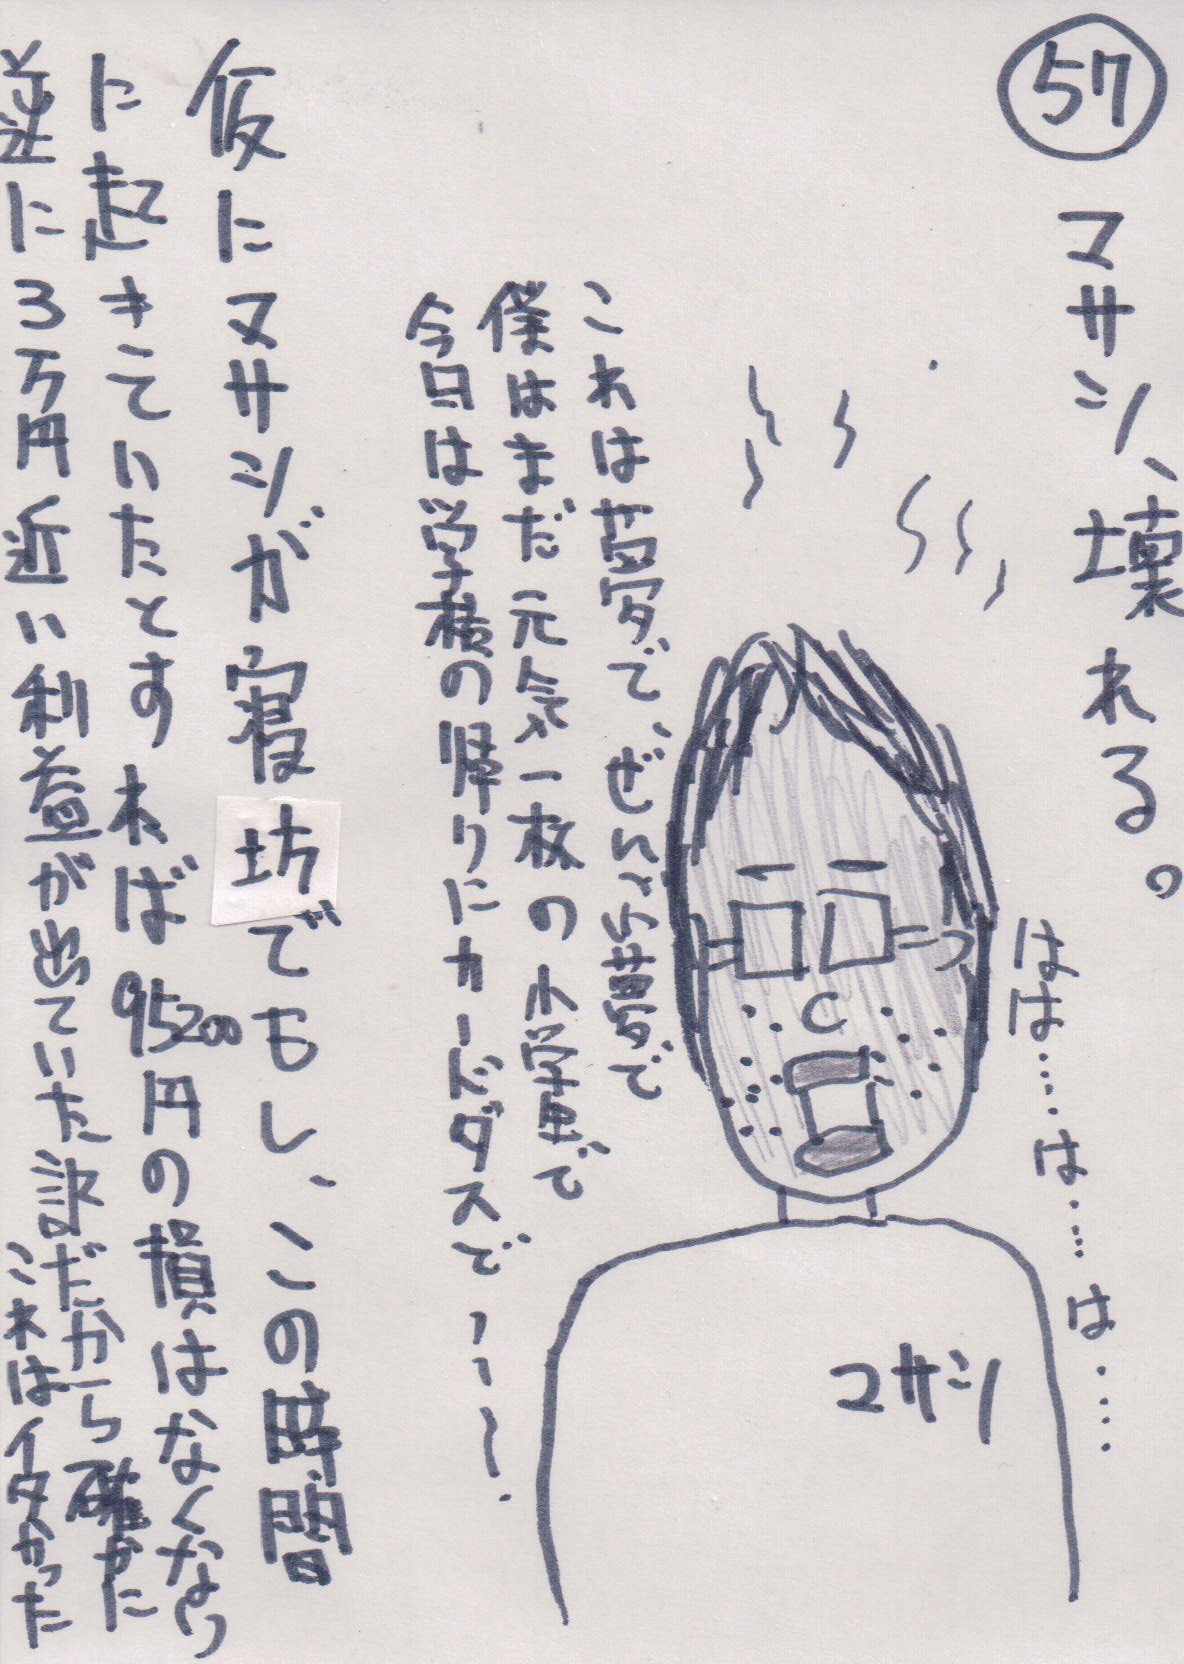 57
マサシ、壊れる。
はは‥‥は‥‥は‥‥
これは夢で、ぜいいん夢で
僕はまだ元気一杯の小学生で
今日は学校の帰りにカードダスで、、、〜.
マサシ
仮にマサシが寝坊でもし、この時間
に起きていたとすれば95200円の損はなくなり
逆に3万円近い利益が出ていた訳だから確かに
これはイタかった